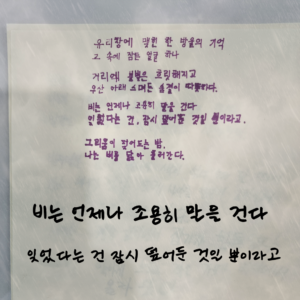 유리창에 맺힌 한 방울의 기억
그 속에 잠든 얼굴 하나
거리의 불빛은 흐릿해지고
우산 아래 스며든 숨결이 따뜻하다.
비는 언제나 조용히 말을 건다
잊었다는 건, 잠시 덮어둔 것일 뿐이라고.
그리움이 밤,
나는 비를 닮아 흘러간다.
비는 언제나 조용히 말을 건다
잊었다는 건 잠시 덮어둔 것일 뿐이라고